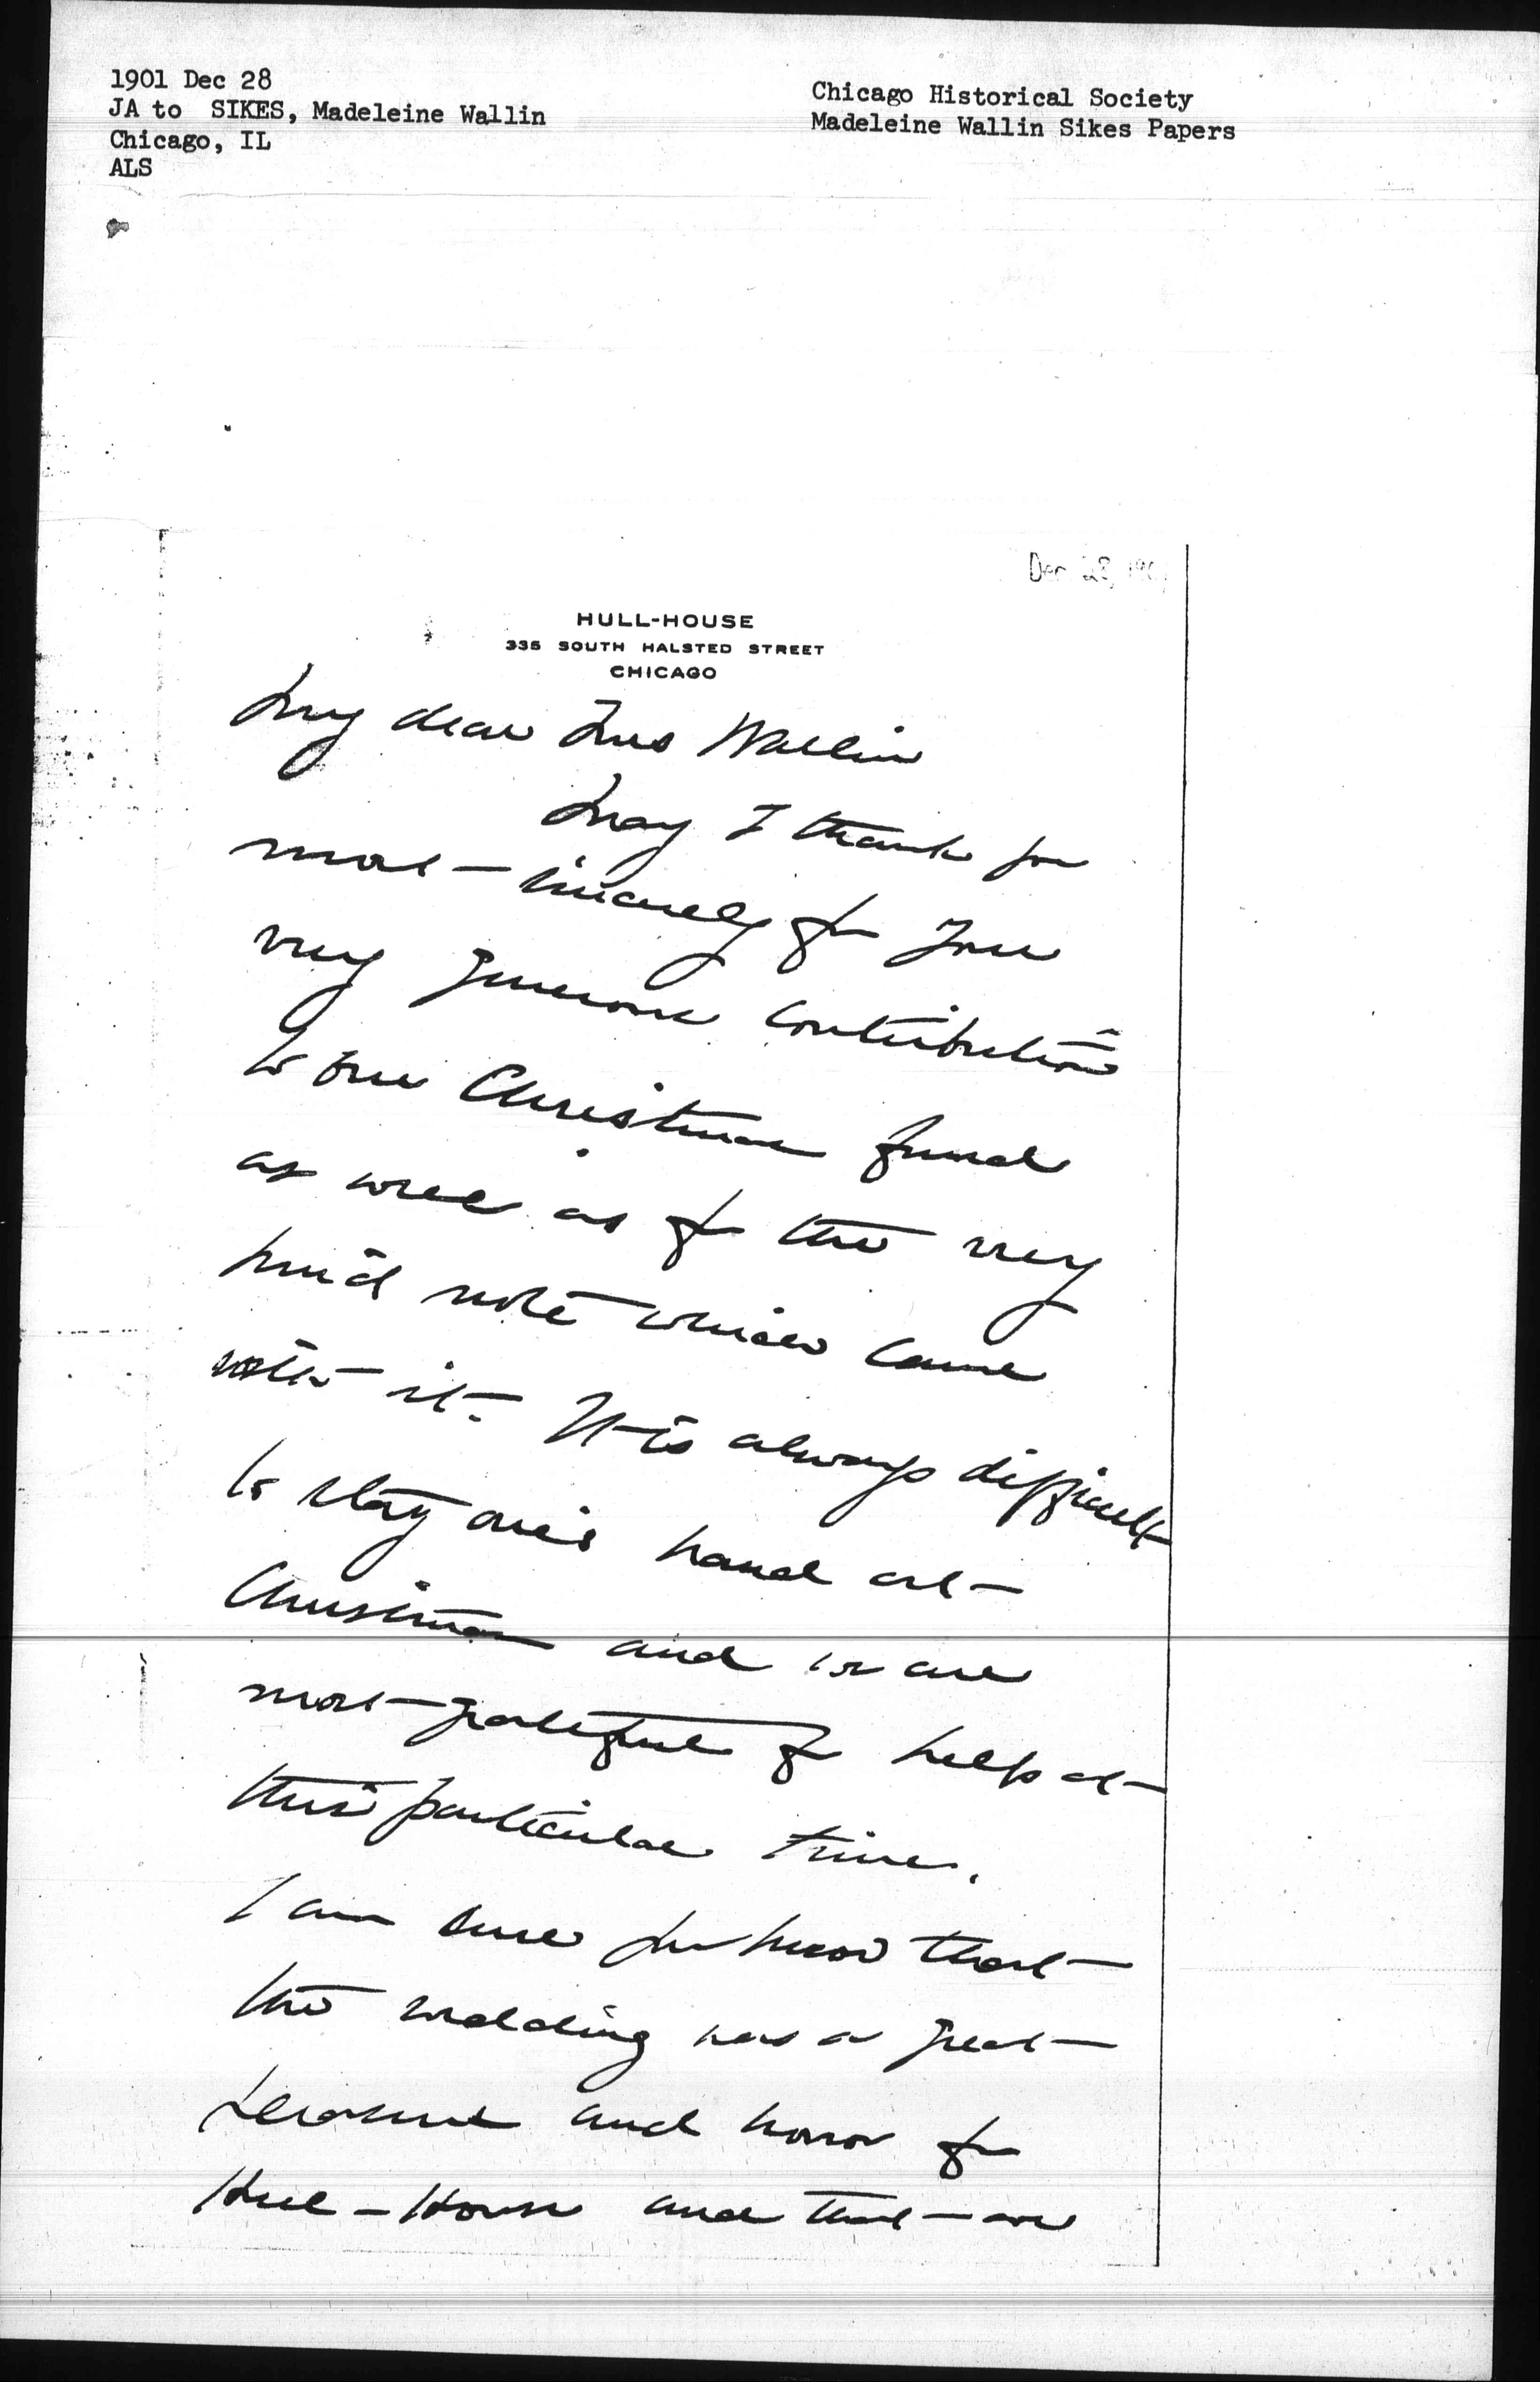 1901 Dec 28
JA to SIKES, Madeleine Wallin
Chicago, IL
ALS
Chicago Historical Society
Madeleine Wallin Sikes Papers
Dec 28, 1901
HULL-HOUSE
335 SOUTH HALSTED STREET
CHICAGO
My dear Mrs Wallin
May I thank you
most sincerely for your
very generous contribution
to our Christmas fund
as well as for the very
kind note which came
with it. It is always difficult
to stay one's hand at
Christmas and we are
most grateful for help at
this particular time.
I am sure you know that
the wedding was a great
pleasure and honor for
Hull-House and that we